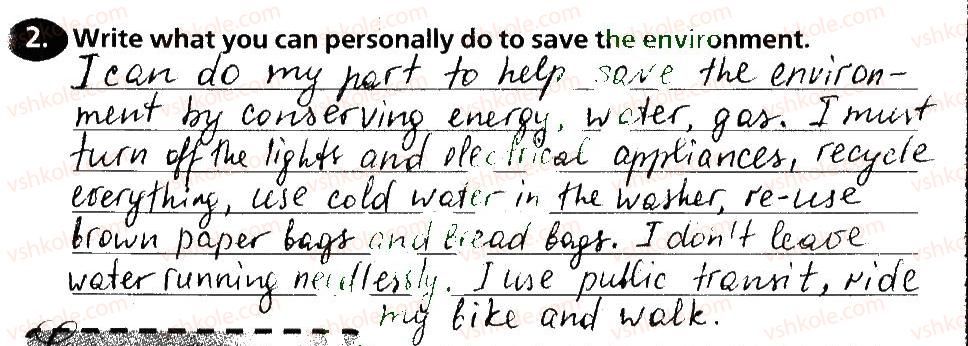 2. Write what you can personally do to save the environment.
I can do my part to help save the environ-
ment by conserving energy, water, gas. I must
turn off the lights and electrical appliances, recycle
everything, use cold water in the washer, re-use
brown paper bags and bread bags. I don't leave
water running needlessly. I use public transit, ride
my bike and walk.